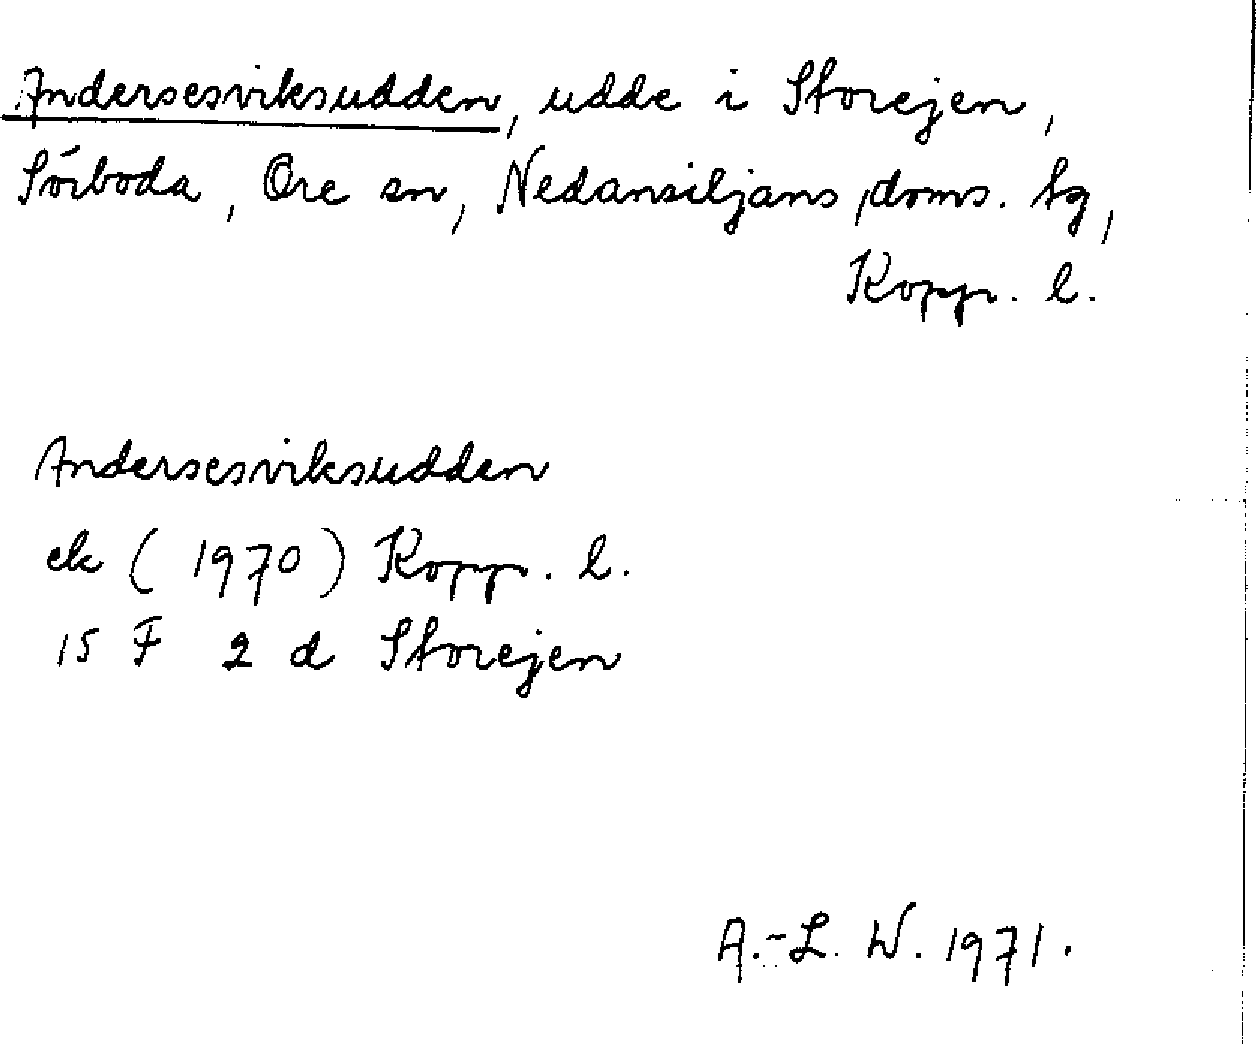 Andersesviksudden, udde i Storejen,
Sörboda, Ore sn, Nedansiljans doms. tg,
Kopp. l.
Andersesviksudden
ek (1970) Kopp. l.
15 F 2 d Storejen
A.-L. W. 1971.